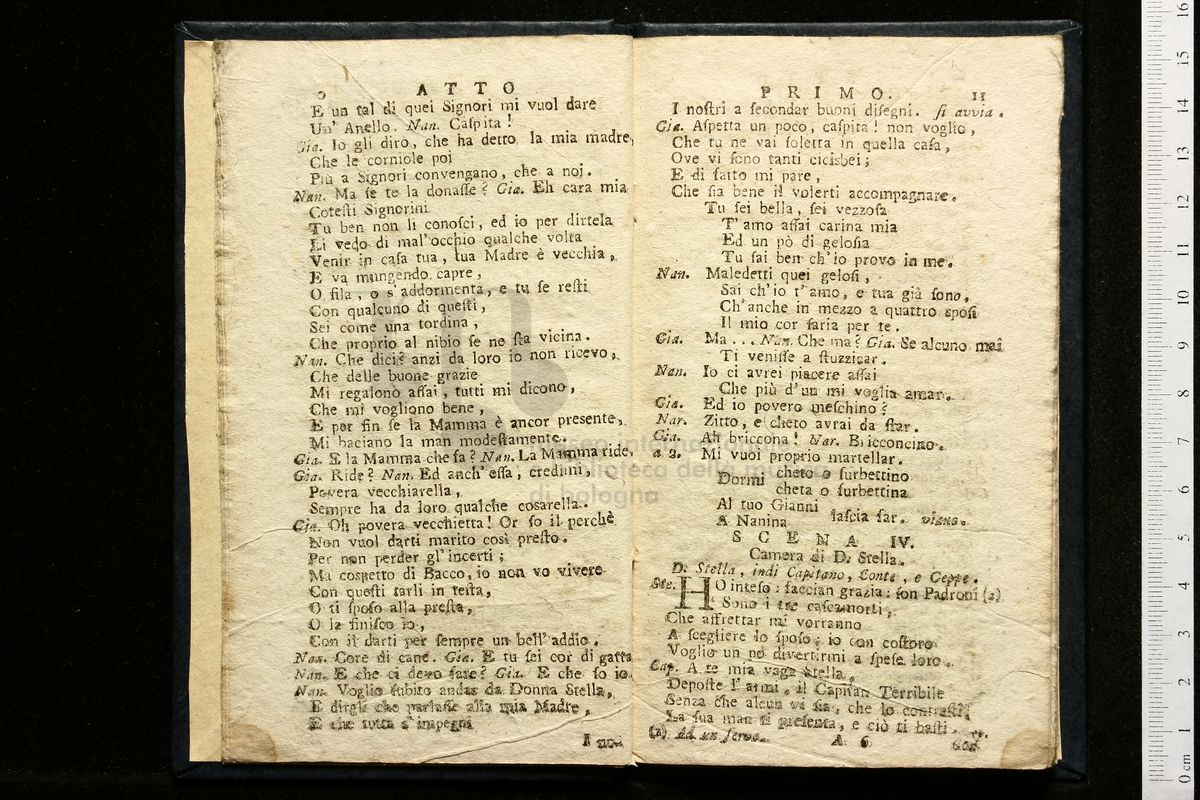 ATTO
E un tal di quei Signori mi vuol dare
Un' Anello. Nan. Caſpita!
Gia. Io gli dirò, che ha detto la mia madre,
Che le corniole poi
Più a Signori convengano, che a noi.
Nan. Ma ſe te la donaſſe? Gia. Eh cara mia
Coteſti Signorini
Tu ben non li conoſci, ed io per dirtela
Li vedo di mal'occhio qualche volta
Venir in caſa tua, tua Madre è vecchia,
E va mungendo capre,
O fila, o s'addormenta, e tu ſe reſti
Con qualcuno di queſti,
Sei come una tordina,
Che proprio al nibio ſe ne ſta vicina.
Nan. Che dici? anzi da loro io non ricevo,
Che delle buone grazie
Mi regalono aſſai, tutti mi dicono,
Che mi vogliono bene,
E per fin ſe la Mamma è ancor preſente,
Mi baciano la man modeſtamente.
Gia. E la Mamma che fa? Nan. La Mamma ride,
Gia. Ride? Nan. Ed anch'eſſa, credimi,
Povera vecchiarella,
Sempre ha da loro qualche coſarella.
Gia. Oh povera vecchietta! Or ſo il perchè
Non vuol darti marito così preſto.
Per non perder gl'incerti;
Ma coſpetto di Bacco, io non vo vivere
Con queſti tarli in teſta,
O ti ſpoſo alla preſta,
O la finiſco io,
Con il darti per ſempre un bell'addio.
Nan. Core di cane. Gia. E tu ſei cor di gatta
Nan. E che ci devo fare? Gia. E che ſo io
Nan. Voglio ſubito andar da Donna Stella,
E dirgli che parlaſſe alla mia Madre,
E che tutta s'impegni
I no-
PRIMO. 11
I noſtri a ſecondar buoni diſegni. ſi avvia.
Gia. Aſpetta un poco, caſpita! non voglio,
Che tu ne vai ſoletta in quella caſa,
Ove vi ſono tanti cicisbei;
E di fatto mi pare,
Che ſia bene il volerti accompagnare.
Tu ſei bella, ſei vezzoſa
T'amo aſſai carina mia
Ed un pò di geloſia
Tu ſai ben ch'io provo in me.
Nan. Maledetti quei geloſi,
Sai ch'io t'amo, e tua già ſono,
Ch'anche in mezzo a quattro ſpoſi
Il mio cor ſaria per te.
Gia. Ma... Nan. Che ma? Gia. Se alcuno mai
Ti veniſſe a ſtuzzicar.
Nan. Io ci avrei piacere aſſai
Che più d'un mi voglia amar.
Gia. Ed io povero meſchino?
Nar. Zitto, e cheto avrai da ſtar.
Gia. Ah briccona! Nar. Bricconcino.
a 2. Mi vuoi proprio martellar.
Dormi cheto o furbettino
cheta o furbettina
Al tuo Gianni
A Nanina laſcia far. viano.
SCENA IV.
Camera di D. Stella.
D. Stella, indi Capitano, Conte, e Ceppe.
Ste. HO inteſo: faccian grazia: ſon Padroni (a)
Sono i tre caſcamorti,
Che affrettar mi vorranno
A ſcegliere lo ſpoſo; io con coſtoro
Voglio un pò divertirmi a ſpeſe loro.
Cap. A te mia vaga Stella,
Depoſte l'armi, il Capitan Terribile
Senza che alcun vi ſia, che lo contraſti,
La ſua man ti preſenta, e ciò ti baſti.
(a) ad un ſervo. A 6
museo internazionale
biblioteca della musica
di bologna